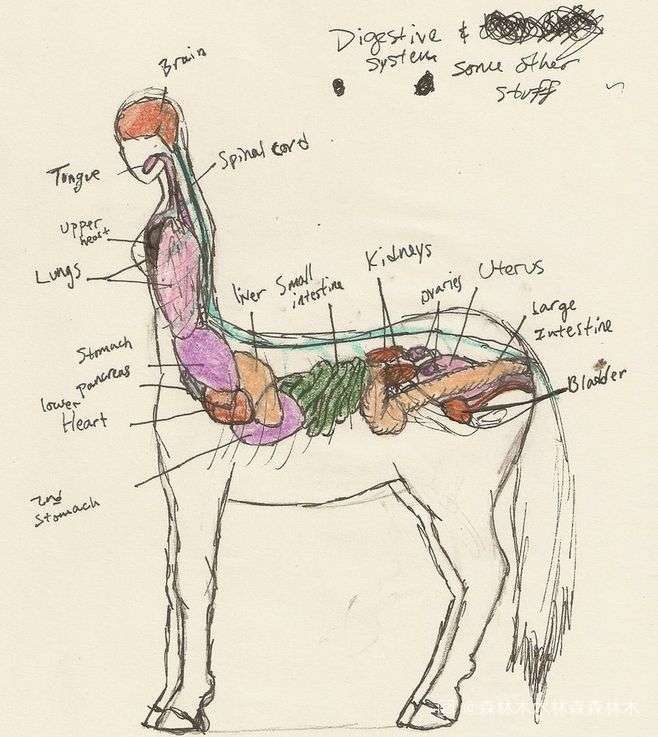 Digestive &
system some other
stuff
Brain
Spinal cord
Tongue
upper
heart
Lungs
liver
Small
intestine
Kidneys
ovaries
Uterus
Large
Intestine
Bladder
Stomach
Pancreas
lower
Heart
2nd
Stomach
@森林木水林森森林木